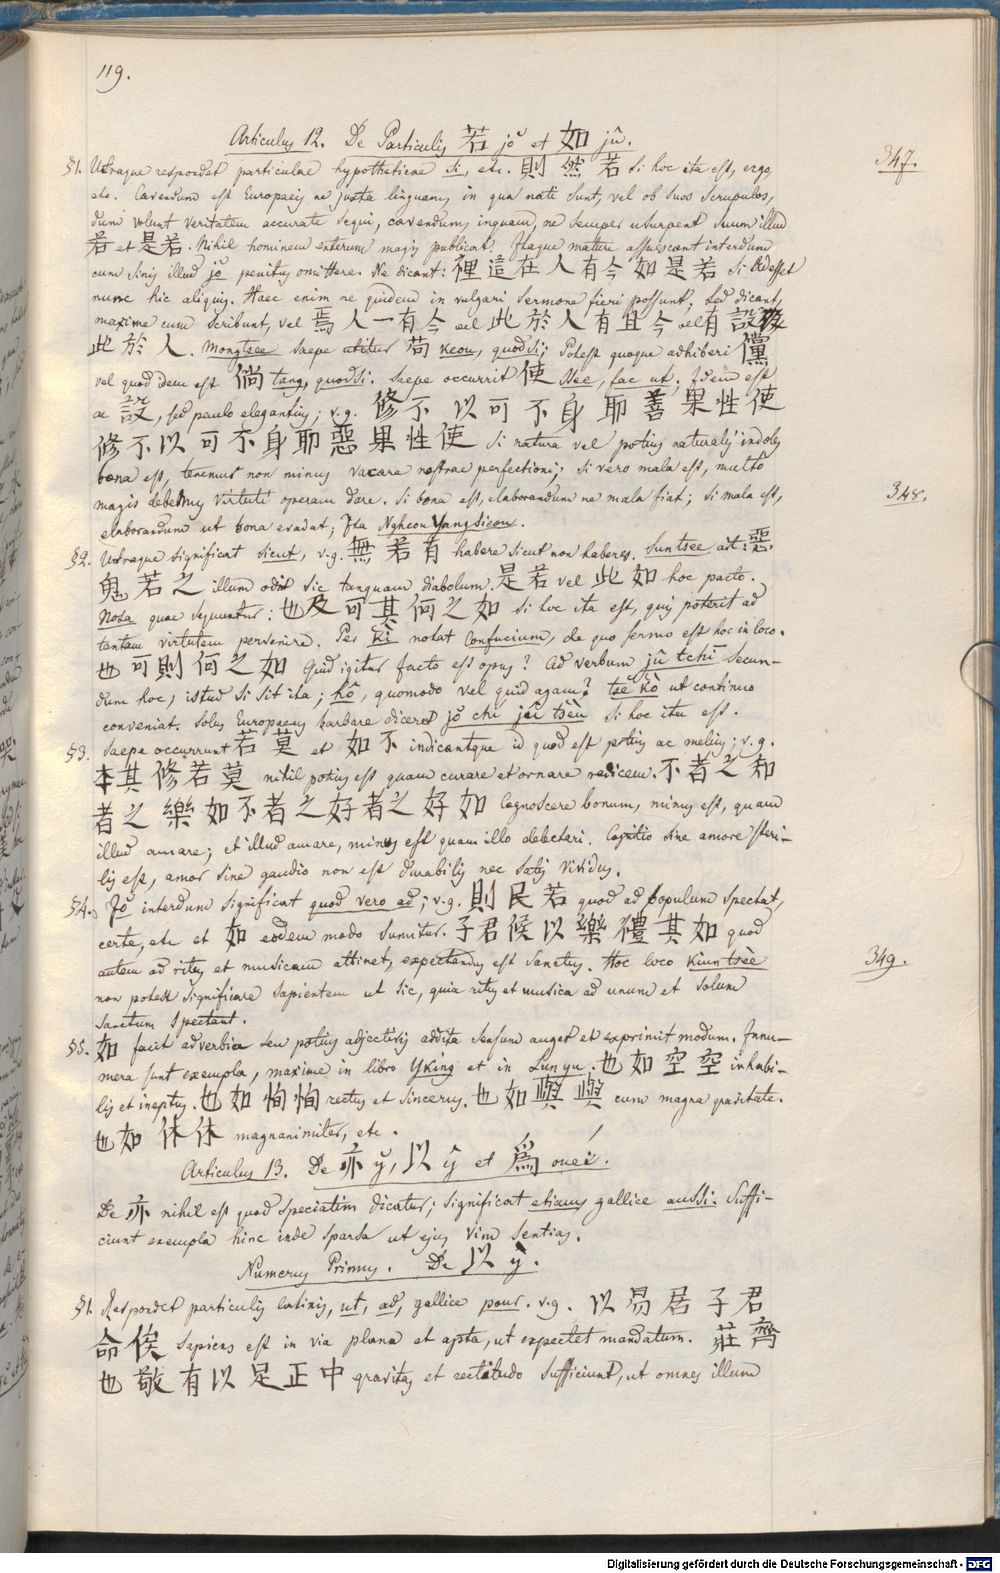 119.
Articulus 12. De Particulis 若 jŏ et 如 jû.
347.
§1. Utraque respondet particulae hypotheticae si, etc. 則 然 若 si hoc ita est, ergo,
etc. Cavendum est Europaeis ne juxta linguam, in qua nati sunt, vel ob suos scrupulos,
dum volunt veritatem accurate sequi, cavendum, inquam, ne semper usurpent suum illud
若 et 是若. Nihil hominem exterum magis publicat. Itaque mature assuescant interdum
cum Sinis illud jŏ penitus omittere. Ne dicant: 裡這在人有今如是若 si adesset
nunc hic aliquis. Haec enim ne quidem in vulgari sermone fieri possunt. Sed dicant,
maxime cum scribunt, vel 焉人一有今 vel 此於人有且今 vel 有設
此於人. Mongtsee saepe utitur 苟 keou, quodsi; Potest quoque adhiberi 儻
vel quod idem est 倘 tang, quodsi. Saepe occurrit 使 ssee, fac ut. Idem est
ac 設, sed paulo elegantius; v.g. 修不以可不身耶善果性使
修不以可不身耶惡果性使 si natura vel potius naturalis indoles
bona est, tenemur non minus vacare nostrae perfectioni; si vero mala est, multo
magis debemus virtuti operam dare. Si bona est, elaborandum ne mala fiat; si mala est,
348.
elaborandum ut bona evadat; Ita Ngheou Yangsieou.
§2. Utraque significat sicut, v.g. 無若有 habere sicut non haberes. Suntsee ait: 惡
鬼若之 illum odit sic tanquam diabolum. 是若 vel 此如 hoc pacto.
Nota quae sequuntur: 也及可其何之如 si hoc ita est, quis poterit ad
tantam virtutem pervenire. Per kî notat Confucium, de quo sermo est hoc in loco.
也可則何之如 Quid igitur facto est opus? Ad verbum jû tchî secun-
dum hoc, istud si sit ita; hô, quomodo vel quid agam? tsĕ kŏ ut continuo
conveniat. Solus Europaeus barbare diceret jŏ chi jû tsèu si hoc ita est.
§3. Saepe occurrunt 若莫 et 如不 indicantque id quod est potius ac melius; v.g.
本其修若莫 nihil potius est quam curare et ornare radicem. 不者之知
者之樂如不者之好者之好如 Cognoscere bonum, minus est, quam
illud amare; et illud amare, minus est quam illo delectari. Cognitio sine amore steri-
lis est, amor sine gaudio non est durabilis nec satis vividus.
§4. Jŏ interdum significat quod vero ad; v.g. 則民若 quod ad populum spectat,
certe, etc et 如 eodem modo sumitur. 子君俟以樂禮其如 quod
349.
autem ad ritus et musicam attinet, expectandus est Sanctus. Hoc loco kiuntsèe
non potest significare sapientem ut sic, quia ritus et musica ad unum et solum
Sanctum spectant.
§5. 如 facit adverbia seu potius adjectivis addita sensum auget et exprimit modum. Innu-
mera sunt exempla, maxime in libro Yking et in Lunyu. 也如空空 inhabi-
lis et ineptus. 也如恂恂 rectus et sincerus. 也如與與 cum magna gravitate.
也如休休 magnanimiter, etc.
Articulus 13. De 亦 ў, 以 ŷ et 爲 ouei.
De 亦 nihil est quod speciatim dicatur; significat etiam, gallice aussi. Suffi-
ciunt exempla hinc inde sparsa ut ejus vim sentias.
Numerus Primus. De 以 ỳ.
§1. Respondet particulis latinis, ut, ad, gallice pour. v.g. 以易居子君
命俟 Sapiens est in via plana et apta, ut expectet mandatum. 莊齊
也敬有以足正中 gravitas et rectitudo sufficiunt, ut omnes illum
Digitalisierung gefördert durch die Deutsche Forschungsgemeinschaft - DFG